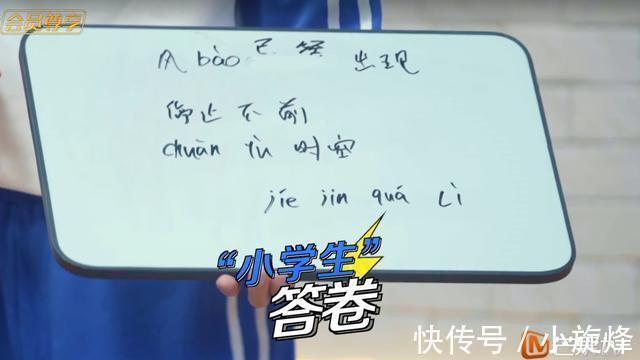 会员尊享
风bào已经出现
停止不前
chuān yù时空
jíe jìn quá Lì
“小学生”
答卷
快传号 / 小旋烽